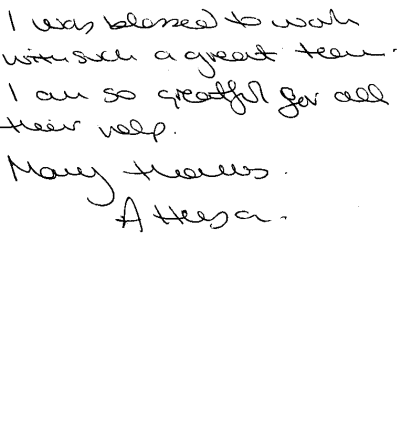 I was blessed to work
with such a great team.
I am so greatful for all
their help.
Many thanks.
Atteesa.